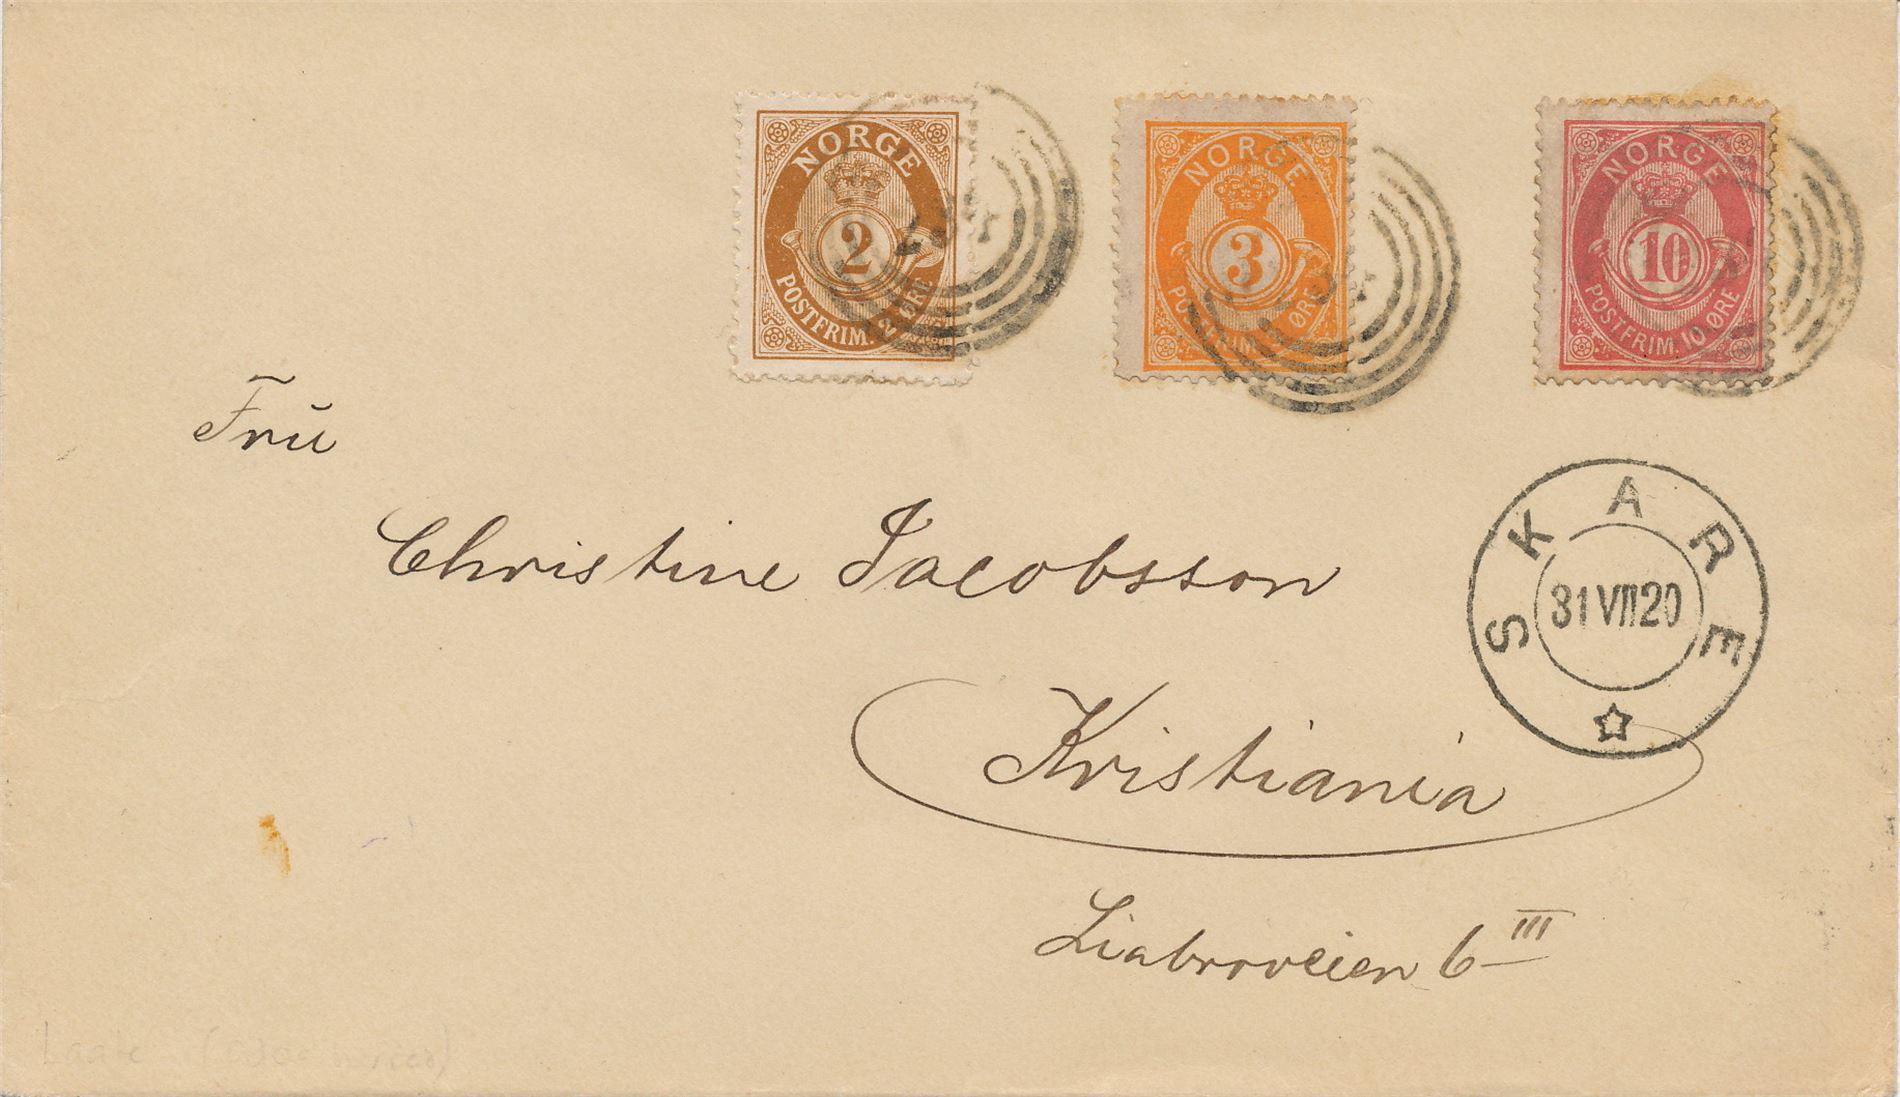 NORGE
2
POSTFRIM. 2 ØRE
NORGE
3
POSTFRIM. ØRE
NORGE
10
POSTFRIM. 10 ØRE
Frŭ
SKARE
31 VII 20
Christine Jacobsson
Kristiania
Liabroveien 6 III
Laate